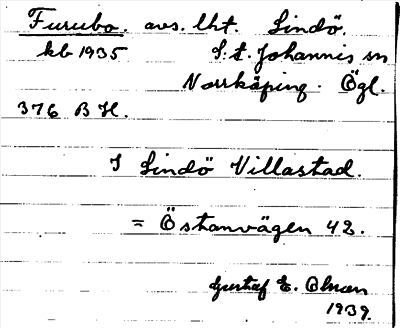 Furubo. avs. lht. Lindö.
kb 1935 S:t. Johannis sn
Norrköping. Ögl.
376 B H.
I Lindö Villastad.
= Östanvägen 42.
Gustaf E. Olman
1939.